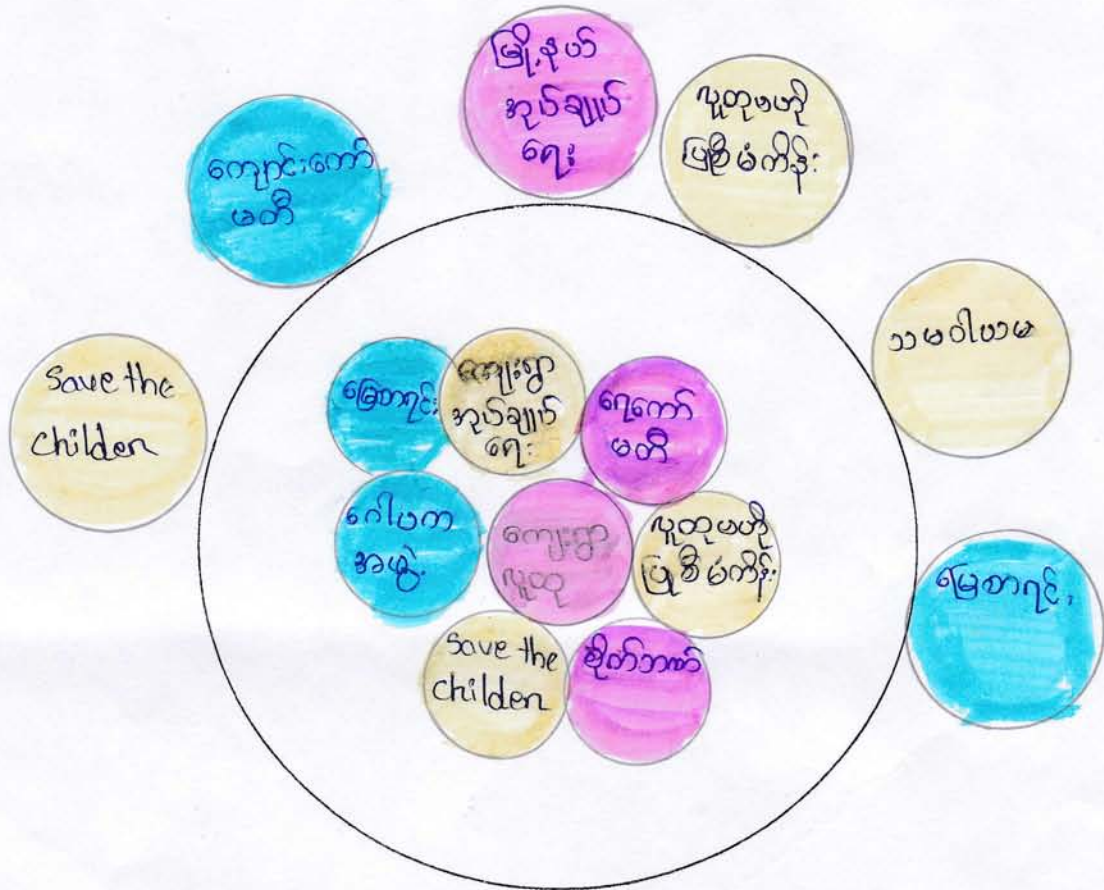 မြို့နယ်
အုပ်ချုပ်
ရေး
လူထုဗဟို
ပြုစီမံကိန်း
ကျောင်းကော်
မတီ
သမဝါယမ
Save the
Childen
မြေစာရင်း
ကျေးရွာ
အုပ်ချုပ်
ရေး
ရေကော်
မတီ
ဂေါပက
အဖွဲ့
ကျေးရွာ
လူထု
လူထုဗဟို
ပြုစီမံကိန်း
မြေစာရင်း
Save the
Childen
စိုက်ဘဏ်